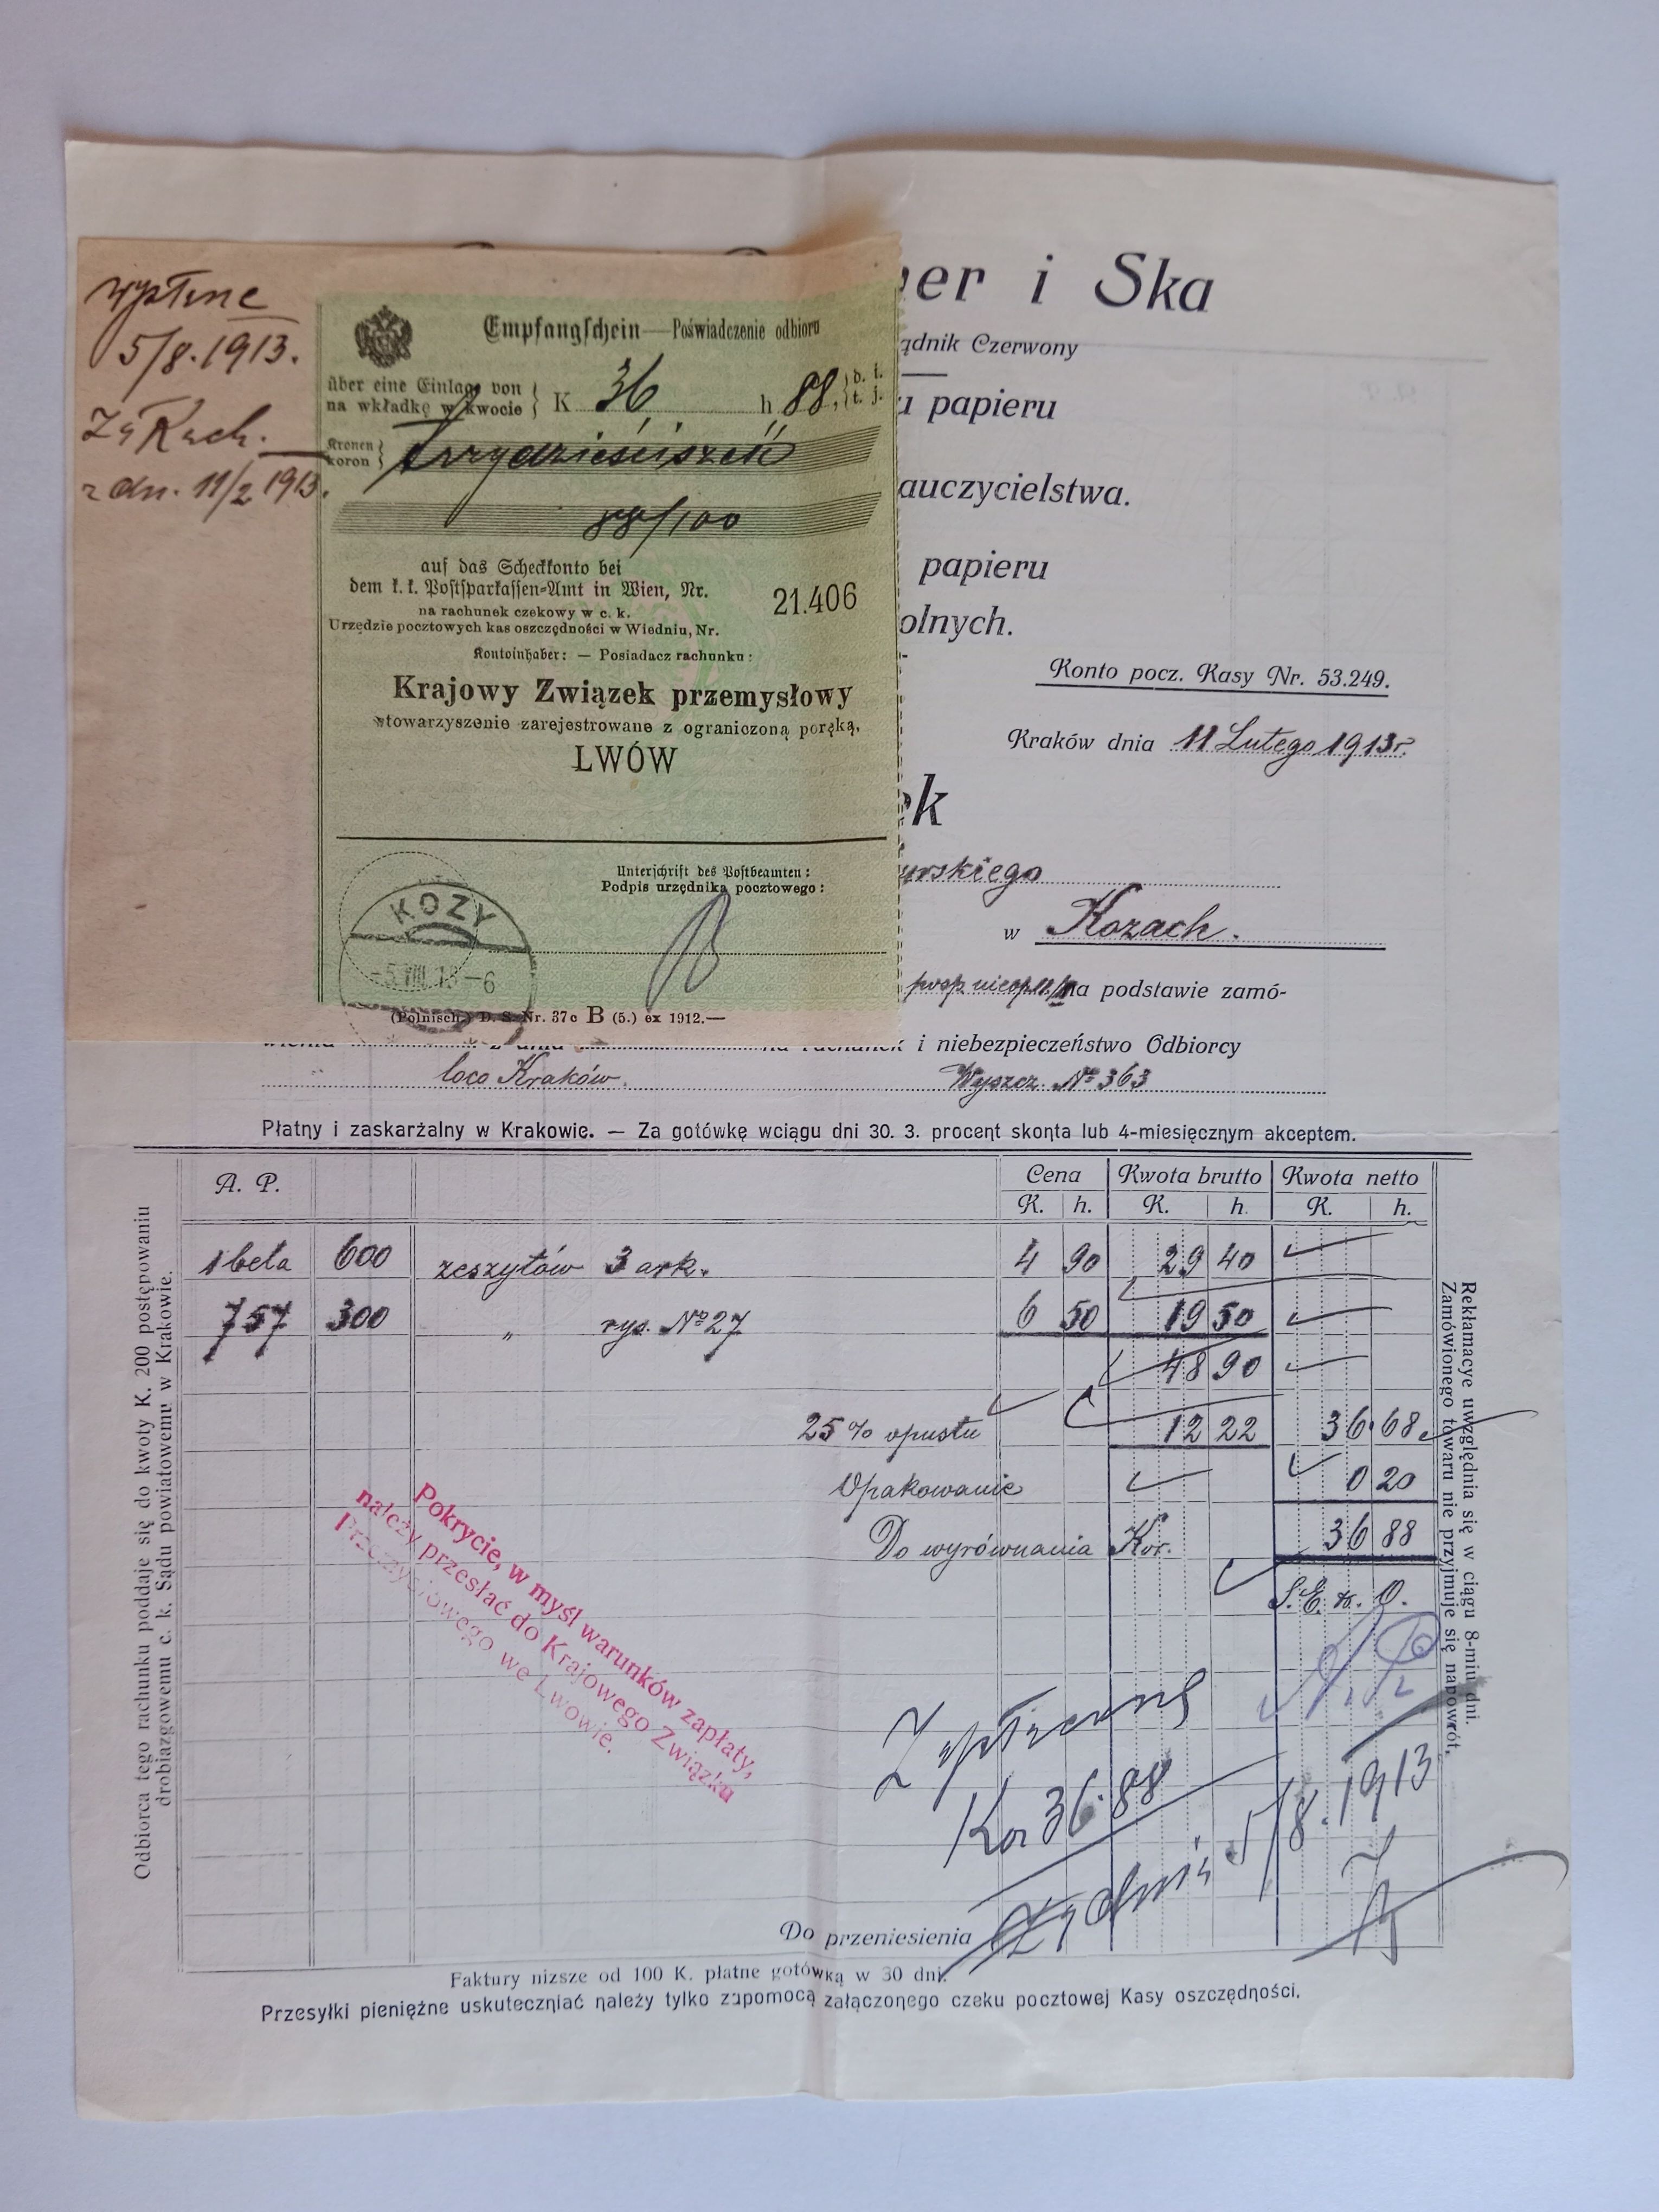 wpłine
5/8.1913.
Za Rach.
z dn. 11/2 1913.
Empfangschein — Poświadczenie odbioru
über eine Einlage von
na wkładkę w kwocie } K 36 h 88, { d. i. t. j.
Kronen
koron } trzydzieścisześć
88/100
auf das Scheckkonto bei
dem k. k. Postsparkassen-Amt in Wien, Nr. 21.406
na rachunek czekowy w c. k.
Urzędzie pocztowych kas oszczędności w Wiedniu, Nr.
Kontoinhaber: — Posiadacz rachunku:
Krajowy Związek przemysłowy
stowarzyszenie zarejestrowane z ograniczoną poręką,
LWÓW
Unterschrift des Postbeamten:
Podpis urzędnika pocztowego:
KOZY
-5.VIII.13-6
(Polnisch.) D. S. Nr. 37c B (5.) ex 1912.—
er i Ska
ądnik Czerwony
u papieru
auczycielstwa.
papieru
olnych.
Konto pocz. Kasy Nr. 53.249.
Kraków dnia 11 Lutego 1913r.
ek
urskiego
w Kozach.
na podstawie zamó-
i niebezpieczeństwo Odbiorcy
loco Kraków. Wyszcz. No 363
Płatny i zaskarżalny w Krakowie. — Za gotówkę wciągu dni 30. 3. procent skonta lub 4-miesięcznym akceptem.
A. P. Cena Kwota brutto Kwota netto
K. h. K. h. K. h.
1 bela 600 zeszytów 3 ark. 4 90 29 40
757 300 „ rys. No 27 6 50 19 50
48 90
25% opustu 12 22 36 68
Opakowanie 0 20
Do wyrównania Kor. 36 88
S. E. & O.
Pokrycie, w myśl warunków zapłaty,
należy przesłać do Krajowego Związku
Przemysłowego we Lwowie.
Zapłacono
Kor 36.88
z dnia 5/8.1913
Do przeniesienia
Faktury niższe od 100 K. płatne gotówką w 30 dni.
Przesyłki pieniężne uskuteczniać należy tylko zapomocą załączonego czeku pocztowej Kasy oszczędności.
Odbiorca tego rachunku poddaje się do kwoty K. 200 postępowaniu
drobiazgowemu c. k. Sądu powiatowemu w Krakowie.
Reklamacye uwzględnia się w ciągu 8-miu dni.
Zamówionego towaru nie przyjmuje się napowrót.